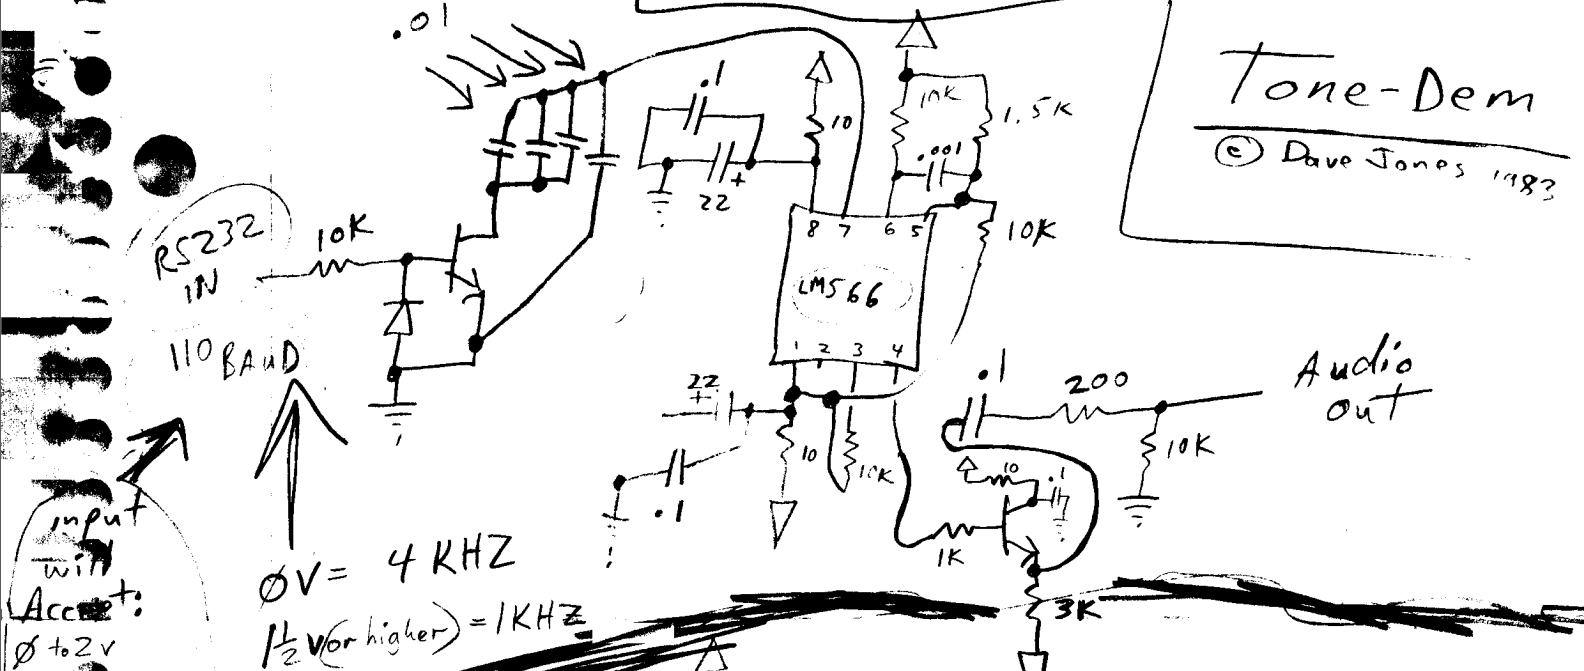 .01
Tone-Dem
© Dave Jones 1983
.1
10
10K
1.5K
.001
22
+
8 7 6 5
10K
RS232
IN
10K
LM566
110 BAUD
1 2 3 4
22
+
10
10K
.1
.1
200
Audio
out
10K
10
.1
1K
3K
input
will
Accept:
Ø to 2v
ØV = 4 KHZ
1½ V (or higher) = 1KHZ